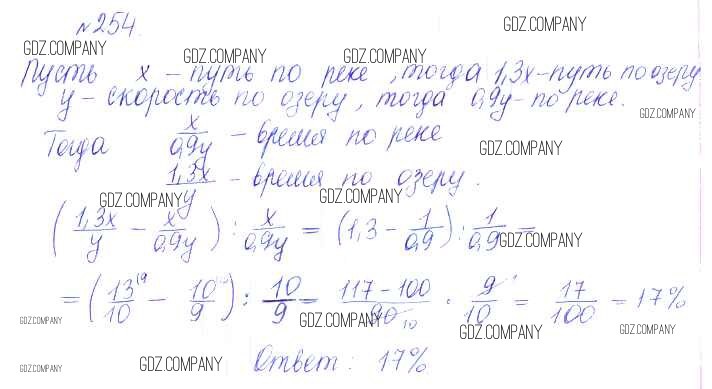 №254.
GDZ.COMPANY
GDZ.COMPANY GDZ.COMPANY GDZ.COMPANY
Пусть x – путь по реке, тогда 1,3x – путь по озеру
y – скорость по озеру, тогда 0,9y – по реке.
GDZ.COMPANY
Тогда x/0,9y – время по реке
GDZ.COMPANY
1,3x/y – время по озеру.
GDZ.COMPANY GDZ.COMPANY
(1,3x/y – x/0,9y) : x/0,9y = (1,3 – 1/0,9) : 1/0,9 =
GDZ.COMPANY
= (13/10 – 10/9) : 10/9 = 117 – 100/90 · 9/10 = 17/100 = 17%
GDZ.COMPANY GDZ.COMPANY GDZ.COMPANY GDZ.COMPANY
Ответ: 17%
GDZ.COMPANY GDZ.COMPANY GDZ.COMPANY